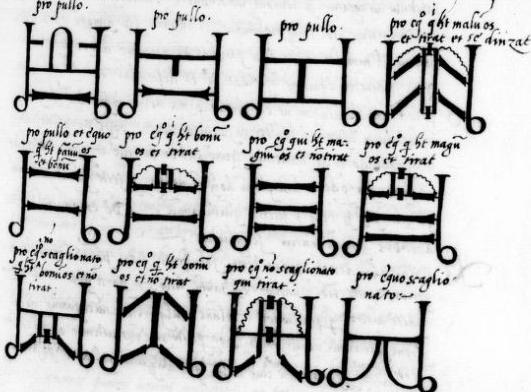 pro pullo.
pro pullo.
pro pullo
pro eq° q ht malū os
et tirat et se drizat
pro pullo et equo
q ht parvū os
et bonū
pro eq° q ht bonū
os et tirat
pro eq° qui ht ma-
gnū os et no tirat
pro eq° q ht magnū
os et tirat
pro eq° scaglionato
no
q ht bonū os et no
tirat.
pro eq° q ht bonū
os et no tirat
pro eq° no scaglionato
qui tirat.
pro equo scaglio
nato.